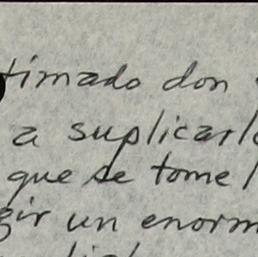 timado don
a suplicarl
que se tome l
gir un enorm